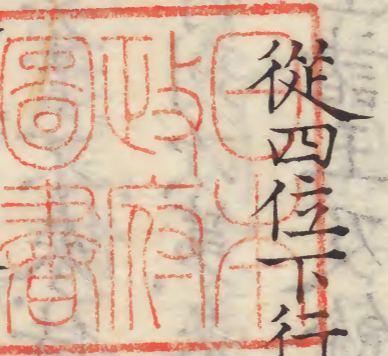 從四位下行
日本
政府
圖書